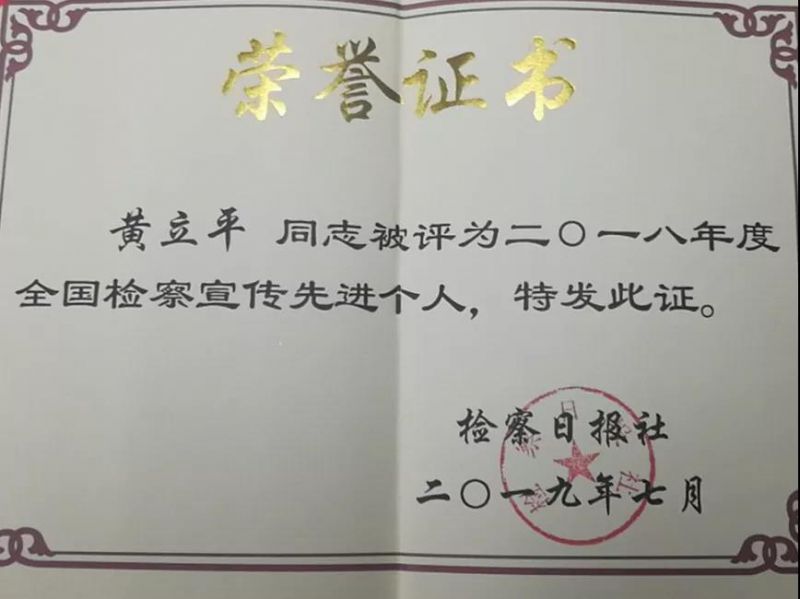 荣誉证书
黄立平 同志被评为二〇一八年度
全国检察宣传先进个人，特发此证。
检察日报社
二〇一九年七月
检察日报社